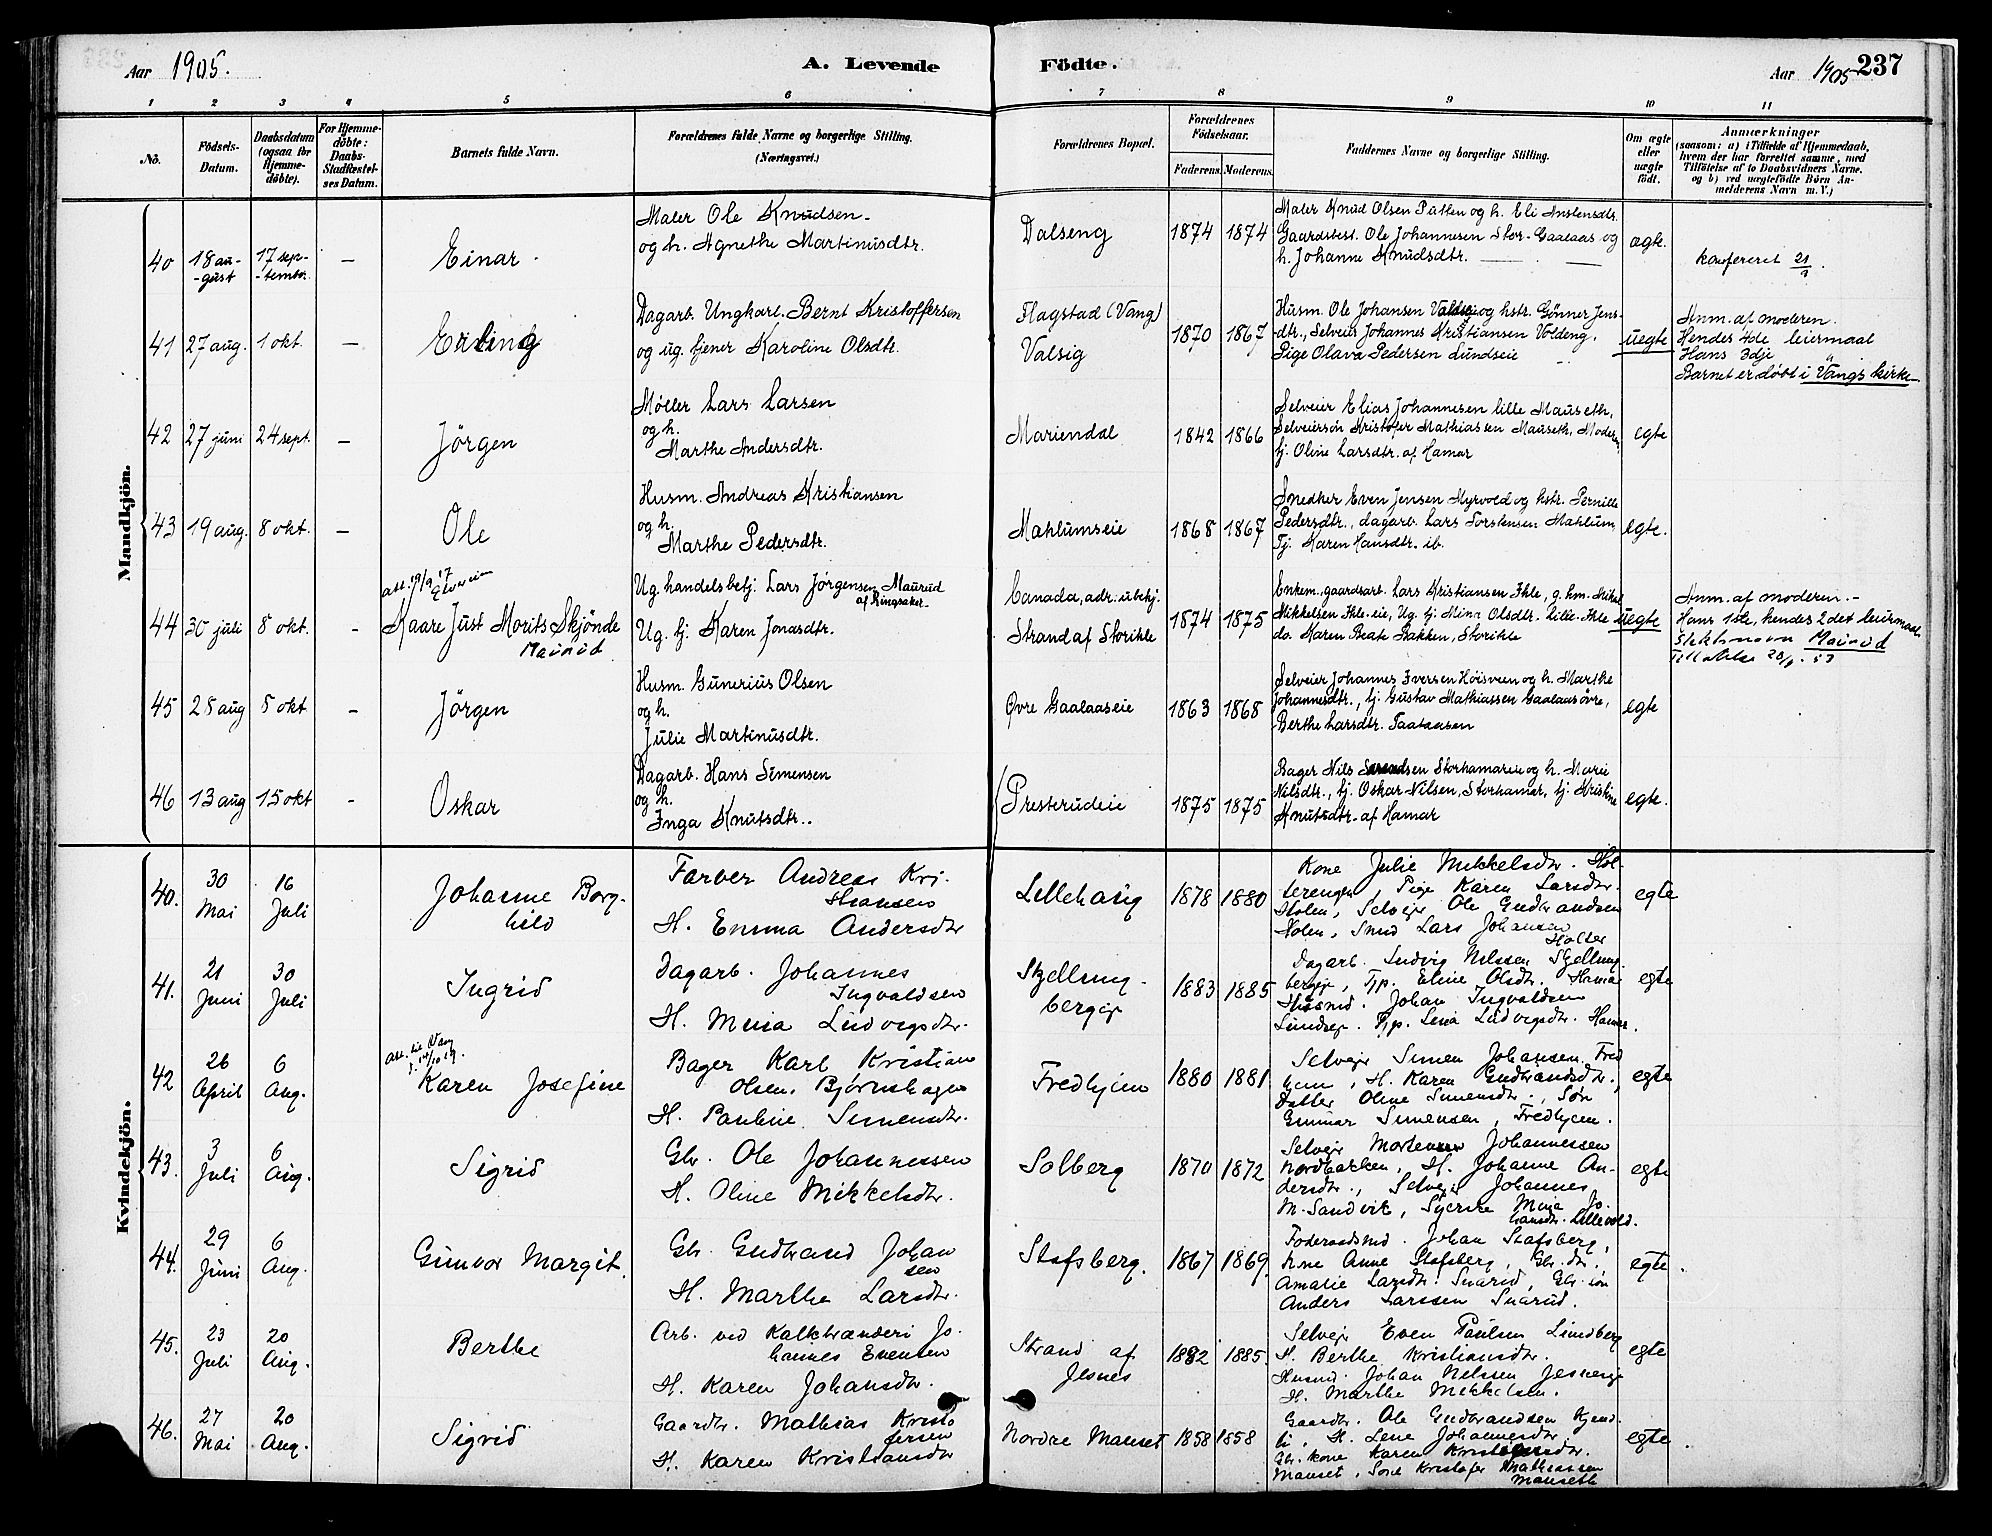 Aar 1905. A. Levende Fødte. Aar 1905 237
1 2 3 4 5 6 7 8 9 10 11
No. Fødsels-Datum. Daabsdatum (ogsaa for Hjemmedøbte). For Hjemmedøbte: Daabs-Stadfæstelses Datum. Barnets fulde Navn. Forældrenes fulde Navne og borgerlige Stilling. (Næringsvei.) Forældrenes Bopæl. Forældrenes Fødselsaar. Faderens. Moderens. Faddernes Navne og borgerlige Stilling. Om ægte eller uægte født. Anmærkninger (saasom: a) i Tilfælde af Hjemmedaab, hvem der har forrettet samme, med Tilføielse af to Daabsvidners Navne. og b) ved uægtefødte Børn Anmelderens Navn m. V.)
Mandkjøn.
40 18 au-gust 17 sep-tembr. — Einar.
Maler Ole Knudsen
og h. Agnethe Martinusdtr.
Dalseng 1874 1874
Maler Knud Olsen Putten og h. Eli Anstensdtr.
Gaardsbest. Ole Johannesen Stor-Gaalaas og
h. Johanne Knudsdtr.
ægte. konfereret 21/9.
41 27 aug. 1 okt. — Erling
Dagarb. Ungkarl. Bernt Kristoffersen
og ug. tjener Karoline Olsdtr.
Flagstad (Vang)
Valsig 1870 1867
Husm. Ole Johansen Valsig og hstr. Gønner Jens-
dtr., Selveir Johannes Kristiansen Voldeng,
Pige Olava Pedersen Lundseie
uegte
Anm. af moderen.
Hendes 4de leiermaal
Hans 3dje
Barnet er døbt i Vangs kirke
42 27 juni 24 sept. — Jörgen
Møller Lars Larsen
og h.
Marthe Andersdtr.
Mariendal 1842 1866
Selveier Elias Johannesen lille Mauseth,
Selveiersøn Kristofer Mathiassen Mauseth, Moderen,
tj. Oline Larsdtr. af Hamar
egte
43 19 aug. 8 okt. — Ole
Husm. Andreas Kristiansen
og h.
Marthe Pedersdtr.
Mahlumseie 1868 1867
Snedker Even Jensen Myrvold og hstr. Pernille
Pedersdtr., dagarb. Lars Torstensen Mahlum,
Tj. Karen Hansdtr. ib.
egte.
44 30 juli 8 okt. - Kaare Just Morits Skjønde
Maurud
att. 19/9 17
Ug. handelsbetj. Lars Jørgensen Maurud
af Ringsaker
Ug. tj. Karen Jonasdtr.
Canada, adr. ubekj.
Strand af Storihle 1874 1875
Enkem. gaardsarb. Lars Kristiansen Ihle, g. hm. Mikal
Mikkelsen Ihle-eie, Ug. tj. Mina Olsdtr. Lille-Ihle
do. Karen Beate Bakken, Storihle
uegte
Anm. af moderen.-
Hans 1ste, hendes 2det leiermaal.
Slektsnavn Maurud
45 28 aug 8 okt - Jörgen
Husm. Gunerius Olsen
og h.
Julie Martinusdtr.
Øvre Gaalaaseie 1863 1868
Selveier Johannes Iversen Höisveen og h. Marthe
Johannesdtr., tj. Gustav Mathiassen Gaalaas øvre,
Berthe Larsdtr. Taataasen
egte
46 13 aug 15 okt - Oskar
Dagarb. Hans Simensen
og h.
Inga Knutsdtr.
Presterudeie 1875 1875
Bager Nils Storhamar og h. Marie
Nilsdtr., tj. Oskar Nilsen, Storhamar, tj. Kristine
Knutsdtr. af Hamar
egte.
Kvindekjön.
40. 30 Mai 16 Juli Johanne Borg-hild
Farver Andreas Kri-stiansen
H. Emma Andersdtr
Lillehaug 1878 1880
Kone Julie Mikkelsdtr. Hol-
terengen, Pige Karen Larsdtr.
Stolen, Selveier Ole Gudbrandsen
Stolen, Smed Lars Johansen
Holter
egte
41. 21 Juni 30 Juli Ingrid
Dagarb. Johannes
Ingvaldsen
H. Mina Ludvigsdtr.
Skjellungbergeje 1883 1885
Dagarb. Ludvig Nilssen Skjellung-
bergeje, Tjp. Eline Olsdtr. Hamar
Husmd. Johan Ingvaldsen
Lundseje. Tjp. Lina Ludvigsdtr. Hamar.
egte
42 26 April 6 Aug. Karen Josefine
att. til Vang
Bager Karl Kristian
Olsen, Bjørnshagen
H. Pauline Simensdtr.
Fredhjem 1880 1881
Selvejr Simen Johansen Fred
hjem, H. Karen Gudbrandsdtr.,
Datter Oline Simensdtr., Søn
Gunnar Simensen, Fredhjem.
egte
43. 3 Juli 6 Aug. Sigrid
Gbr. Ole Johannessen
H. Oline Mikkelsdtr.
Solberg 1870 1872
Selvejr Mortensen Johannessen
Nordbakken, H. Johanne An-
dersdtr., Selvejr Johannes
M. Sandvik, Syerske Mina Jo-
hansdtr. Lillevold.
egte
44. 29 Juni 6 Aug. Gunvor Margit.
Gbr. Gudbrand Johan
sen
H. Marthe Larsdtr.
Stafsberg. 1867 1869.
Føderaadsmd. Johan Stafsberg,
Kone Anne Stafsberg, Gbr.dtr.
Amalie Larsdtr. Snarud, Gbr. søn
Anders Larssen Snarud.
egte.
45. 23 Juli 20 Aug. Berthe
Arb. ved Kalkbrænderi Jo-
hannes Evensen
H. Karen Johansdtr.
Strand af
Jesnes 1882 1885.
Selvejr Even Paulsen Lundberg
H. Berthe Kristiansdtr.
Husmd. Johan Nilssen Jesneseje
H. Marthe Mikkelsen.
egte
46. 27 Mai 20 Aug. Sigrid
Gaardbr. Mathias Kristo
fersen
H. Karen Kristiansdtr
Nordre Mauset 1858 1858
Gaardbr. Ole Gudbrandsen Kjend-
li, H. Lene Johannesdtr.
Gbr. kone Karen Kristofersdtr.
Mauset, Søn Kristofer Mathiassen
Mauseth
egte.